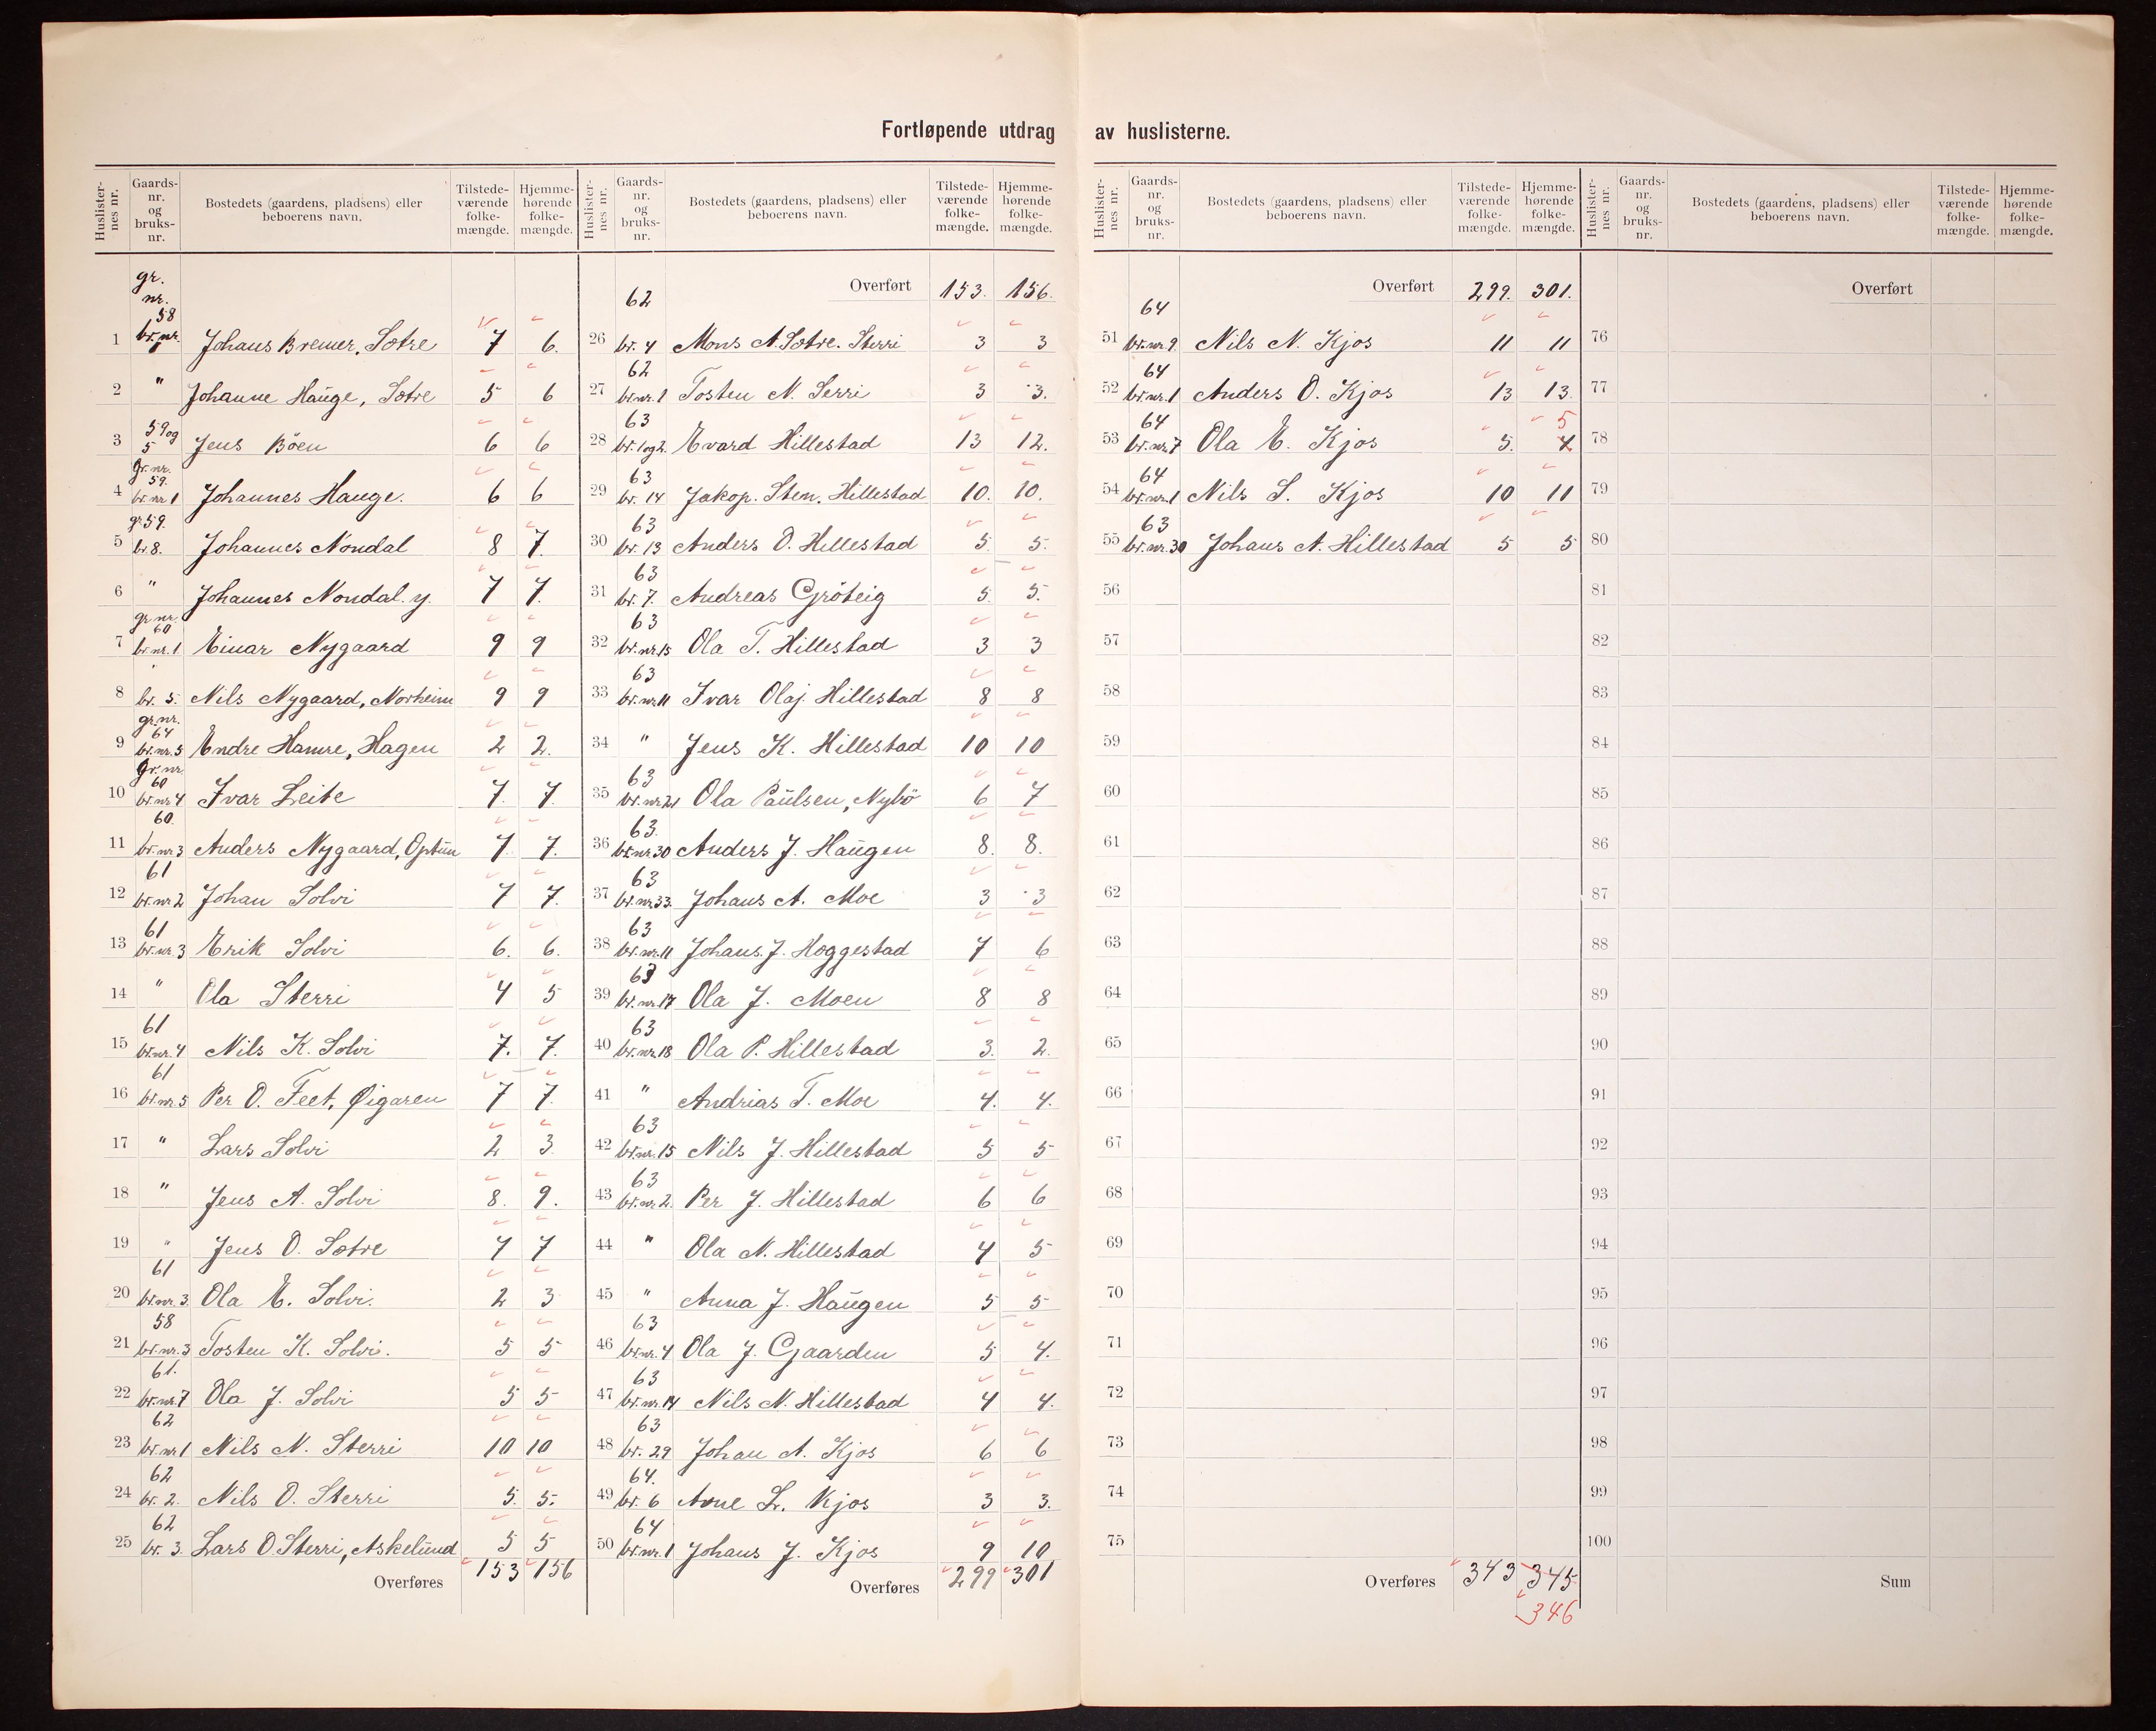 Fortløpende utdrag av huslisterne.
Huslisternes nr. Gaards-nr. og bruks-nr. Bostedets (gaardens, pladsens) eller beboerens navn. Tilstede-værende folke-mængde. Hjemme-hørende folke-mængde.
gr. nr. 58
1 br. nr. Johans Bremer, Sotre 7 6.
2 " Johanne Hauge, Sotre 5 6
3 59 og 5 Jens Böen 6 6
4 gr. nr. 59. br. nr 1 Johannes Hauge. 6 6
5 gr 59. br. 8. Johannes Nondal 8 7.
6 " Johannes Nondal. y. 7 7.
7 gr. nr. 60 br. nr. 1 Einar Nygaard 9 9
8 " br. 5. Nils Nygaard, Norheim 9 9
9 gr. nr. 64 br. nr. 5 Endre Hamre, Hagen 2 2.
10 gr. nr. 60 br. nr 4 Ivar Leite 7. 7.
11 60. br. nr 3 Anders Nygaard, Optun 7. 7.
12 61 br. nr 2 Johan Solvi 7 7.
13 61 br. nr. 3 Erik Solvi 6. 6.
14 " Ola Sterri 4 5
15 61 br. nr. 4 Nils K. Solvi 7. 7.
16 61 br. nr 5 Per O. Feet, Øigaren 7 7.
17 " Lars Solvi 2 3
18 " Jens A. Solvi 8. 9.
19 " Jens O. Sotre 7 7
20 61 br. nr. 3. Ola E. Solvi. 2 3
21 58 br. nr. 3 Tosten K. Solvi. 5 5
22 61. br. nr. 7 Ola J. Solvi 5 5
23 62 br. nr 1 Nils N. Sterri 10 10
24 62 br. 2. Nils O. Sterri 5. 5.
25 62 br. 3. Lars O Sterri, Askelund 5 5
Overføres 153 156
Huslisternes nr. Gaards-nr. og bruks-nr. Bostedets (gaardens, pladsens) eller beboerens navn. Tilstede-værende folke-mængde. Hjemme-hørende folke-mængde.
Overført 153. 156.
26 62 br. 4 Mons A. Sotre. Sterri 3 3
27 62 br. nr. 1 Tosten N. Serri 3 3.
28 63 br. 1 og 2. Evard Hillestad 13 12.
29 63 br. 14 Jakop. Sten. Hillestad 10. 10.
30 63 br. 13 Anders O. Hillestad 5. 5.
31 63 br. 7. Andreas Gröteig 5. 5.
32 63 br. nr 15 Ola T. Hillestad 3 3
33 63 br. nr 11 Ivar Olaj. Hillestad 8 8
34 " Jens K. Hillestad 10 10
35 63 br. nr 21 Ola Paulsen, Nybö 6 7
36 63. br. nr 30 Anders J. Haugen 8. 8.
37 63 br. nr 33. Johans A. Moe 3 3
38 63 br. nr. 11 Johans. J. Hoggestad 7 6
39 63 br. nr. 17 Ola J. Moen 8 8
40 63 br. nr 18 Ola P. Hillestad 3. 2.
41 " Andrias T. Moe 4. 4.
42 63 br. nr. 15 Nils J. Hillestad 5 5
43 63 br. nr 2. Per J. Hillestad 6 6
44 " Ola N. Hillestad 4 5
45 " Anna J. Haugen 5 5
46 63 br. nr. 4 Ola J. Gjaarden 5 4.
47 63 br. nr. 14 Nils N. Hillestad 4 4.
48 63 br. 29 Johan A. Kjos 6 6
49 64. br. 6 Arne L. Kjos 3 3.
50 64 br. nr. 1 Johans J. Kjos 9 10
Overføres 299 301
Huslisternes nr. Gaards-nr. og bruks-nr. Bostedets (gaardens, pladsens) eller beboerens navn. Tilstede-værende folke-mængde. Hjemme-hørende folke-mængde.
Overført 299. 301.
51 64 br. nr. 9. Nils N. Kjos 11 11
52 64 br. nr. 1 Anders O. Kjos 13 13.
53 64 br. nr. 7 Ola E. Kjos 5. 4 5
54 64 br. nr. 1 Nils S. Kjos 10 11
55 63 br. nr. 30 Johans A. Hillestad 5 5
56
57
58
59
60
61
62
63
64
65
66
67
68
69
70
71
72
73
74
75
Overføres 343 345
346
Huslisternes nr. Gaards-nr. og bruks-nr. Bostedets (gaardens, pladsens) eller beboerens navn. Tilstede-værende folke-mængde. Hjemme-hørende folke-mængde.
Overført
76
77
78
79
80
81
82
83
84
85
86
87
88
89
90
91
92
93
94
95
96
97
98
99
100
Sum